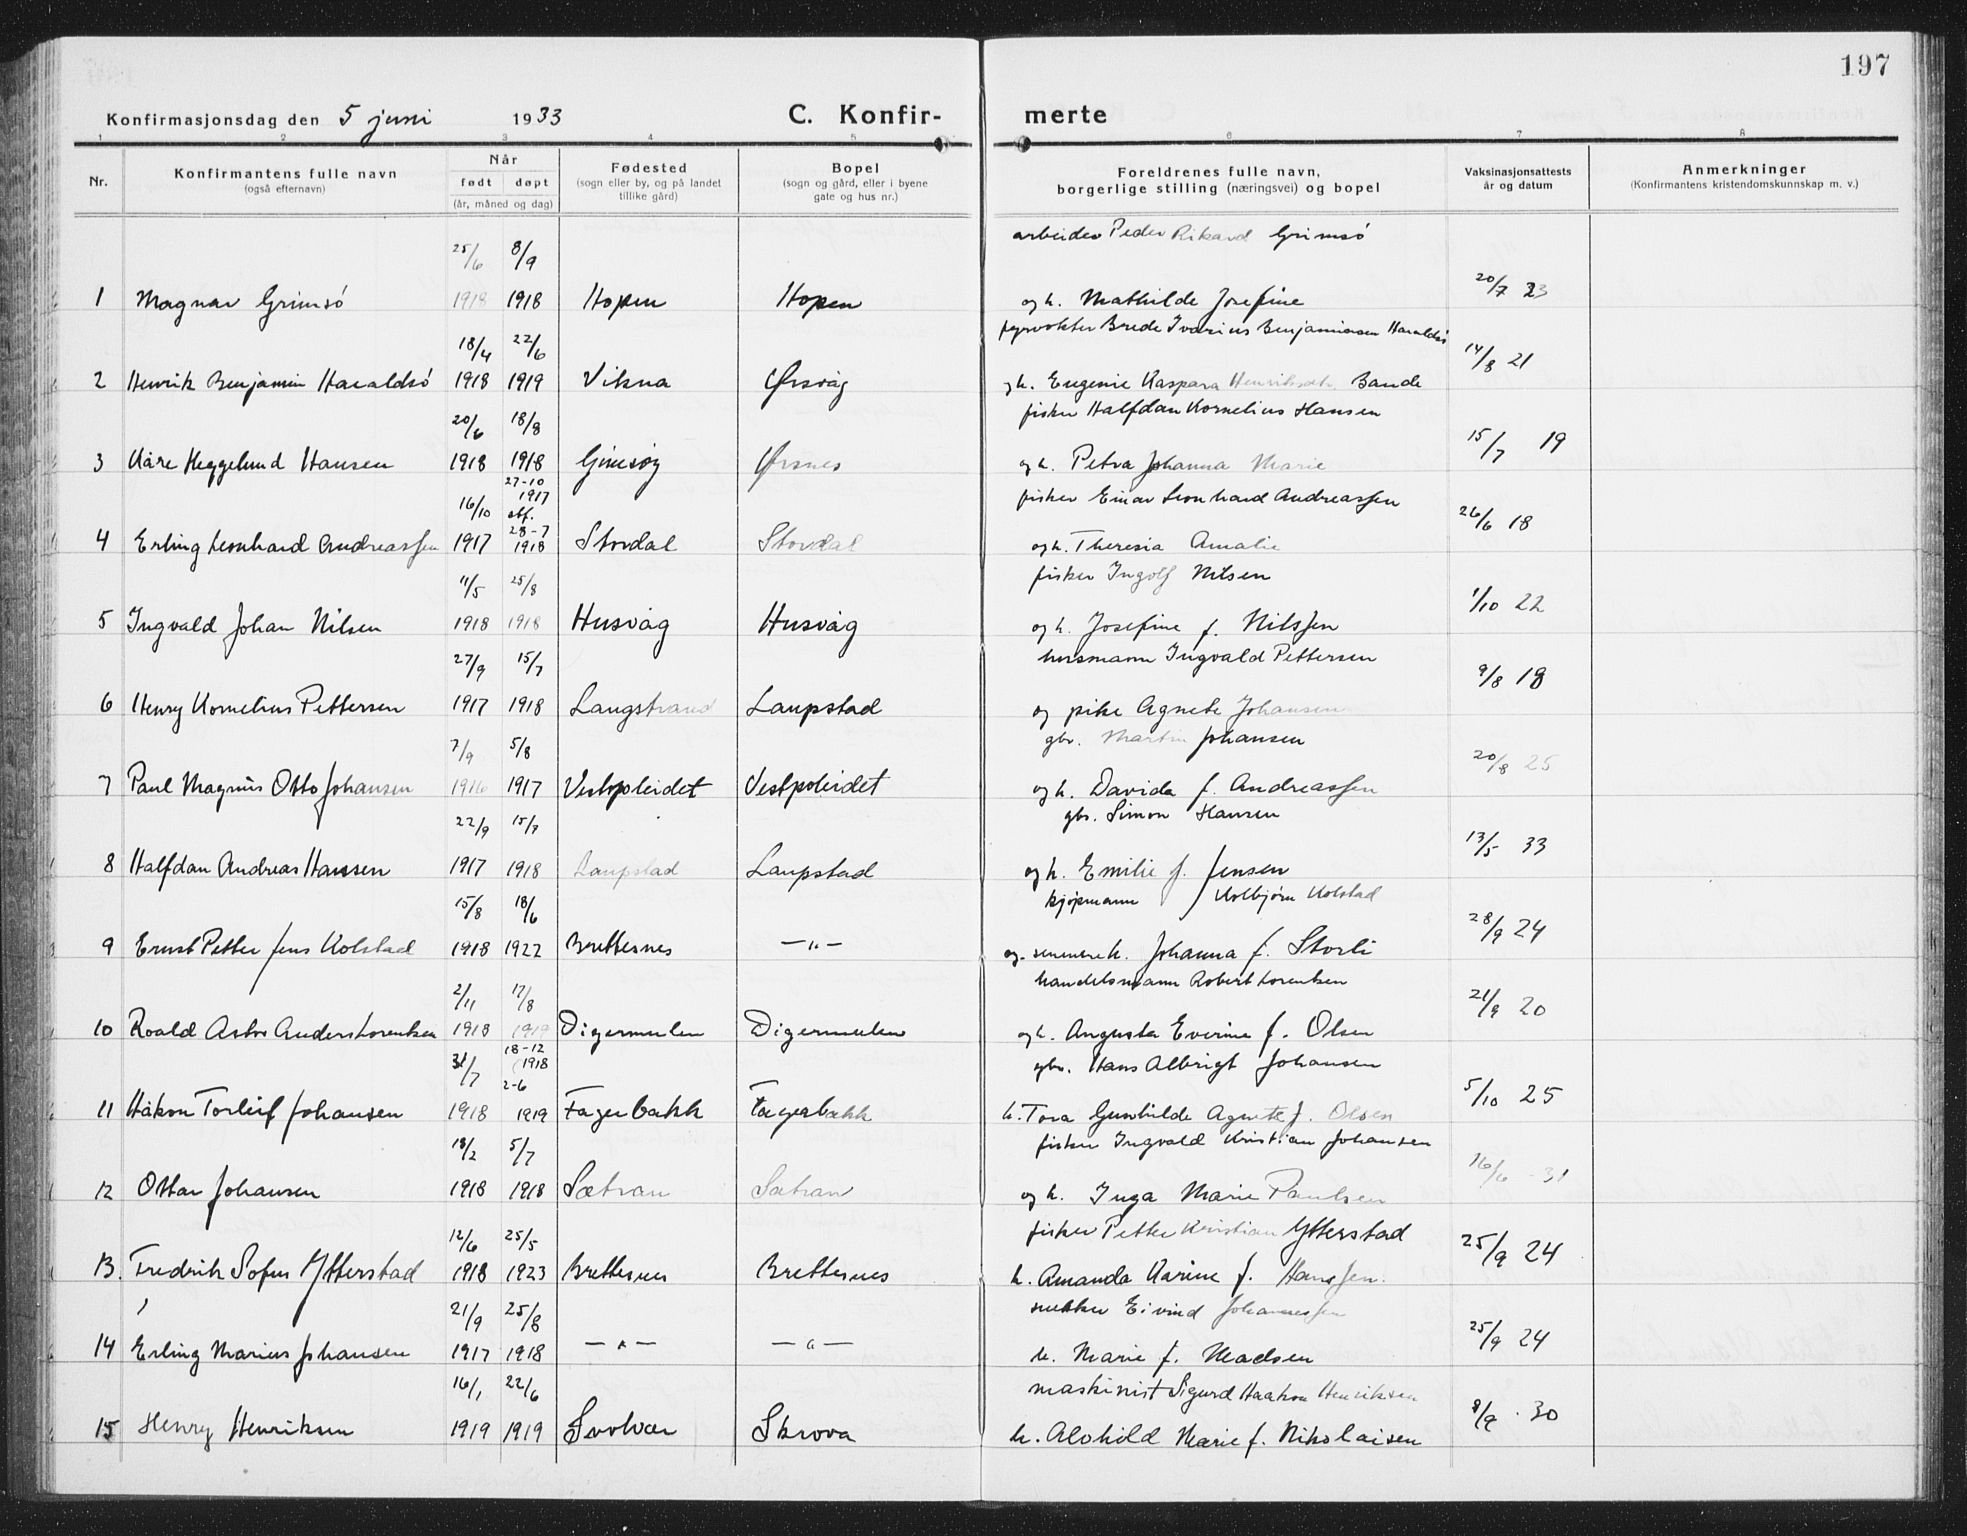 197
Konfirmasjonsdag den 5 juni 1933 C. Konfir- merte
1 2 3 4 5 6 7 8
Nr. Konfirmantens fulle navn (også efternavn) Når født døpt (år, måned og dag) Fødested (sogn eller by, og på landet tillike gård) Bopel (sogn og gård, eller i byene gate og hus nr.) Foreldrenes fulle navn, borgerlige stilling (næringsvei) og bopel Vaksinasjonsattests år og datum Anmerkninger (Konfirmantens kristendomskunnskap m. v.)
25/6 8/9 arbeider Peder Rikard Grimsø
1 Magnar Grimsø 1918 1918 Hopen Hopen og h. Mathilde Josefine 20/7 23
18/4 22/6 fyrvokter Brede Ivarius Benjaminsen Haraldsø
2 Henrik Benjamin Haraldsø 1918 1919 Vikna Ørsvåg og h. Eugenie Kaspara Henriksdtr. Bande 14/8 21
20/6 18/8 fisker Halfdan Kornelius Hansen
3 Kåre Heggelund Hansen 1918 1918 Gimsøy Ørsnes og h. Petra Johanna Marie 15/7 19
16/10 27-10 1917 stf. fisker Einar Leonhard Andreassen
4 Erling Leonhard Andreassen 1917 28-7 1918 Stordal Stordal og h. Theresia Amalie 26/6 18
11/5 25/8 fisker Ingolf Nilsen
5 Ingvald Johan Nilsen 1918 1918 Husvåg Husvåg og h. Josefine f. Nilssen 1/10 22
27/9 15/7 husmann Ingvald Pettersen
6 Henry Kornelius Pettersen 1917 1918 Langstrand Laupstad og pike Agnete Johansen 9/8 18
7/9 5/8 gbr. Martin Johansen
7 Paul Magnus Otto Johansen 1916 1917 Vestpoleidet Vestpoleidet og h. Davida f. Andreassen 20/8 25
22/9 15/7 gbr. Simon Hansen
8 Halfdan Andreas Hansen 1917 1918 Laupstad Laupstad og h. Emilie f. Jensen 13/5 33
15/8 18/6 kjøpmann Kolbjørn Kolstad
9 Ernst Petter Jens Kolstad 1918 1922 Brettesnes —"— og senere h. Johanna f. Storli 28/9 24
2/11 17/8 handelsmann Robert Lorentsen
10 Roald Astor Anders Lorentsen 1918 1919 Digermulen Digermulen og h. Augusta Everine f. Olsen 21/9 20
31/7 18-12 1918 gbr. Hans Albrigt Johansen
11 Håkon Torleif Johansen 1918 2-6 1919 Fagerbakk Fagerbakk h. Tora Gunhilde Agnete f. Olsen 5/10 25
18/2 5/7 fisker Ingvald Kristian Johansen
12 Ottar Johansen 1918 1918 Sætran Sætran og h. Inga Marie Paulsen 16/6 - 31
12/6 25/5 fisker Petter Kristian Ytterstad
13. Fredrik Sofus Ytterstad 1918 1923 Brettesnes Brettesnes h. Amanda Karine f. Hanssen. 25/9 24
21/9 25/8 snekker Eivind Johannessen
14 Erling Marius Johansen 1917 1918 —"— —"— h. Marie f. Madsen 25/9 24
16/1 22/6 maskinist Sigurd Haakon Henriksen
15 Henry Henriksen 1919 1919 Svolvær Skrova h. Alohild Marie f. Nikolaisen 8/9 . 30